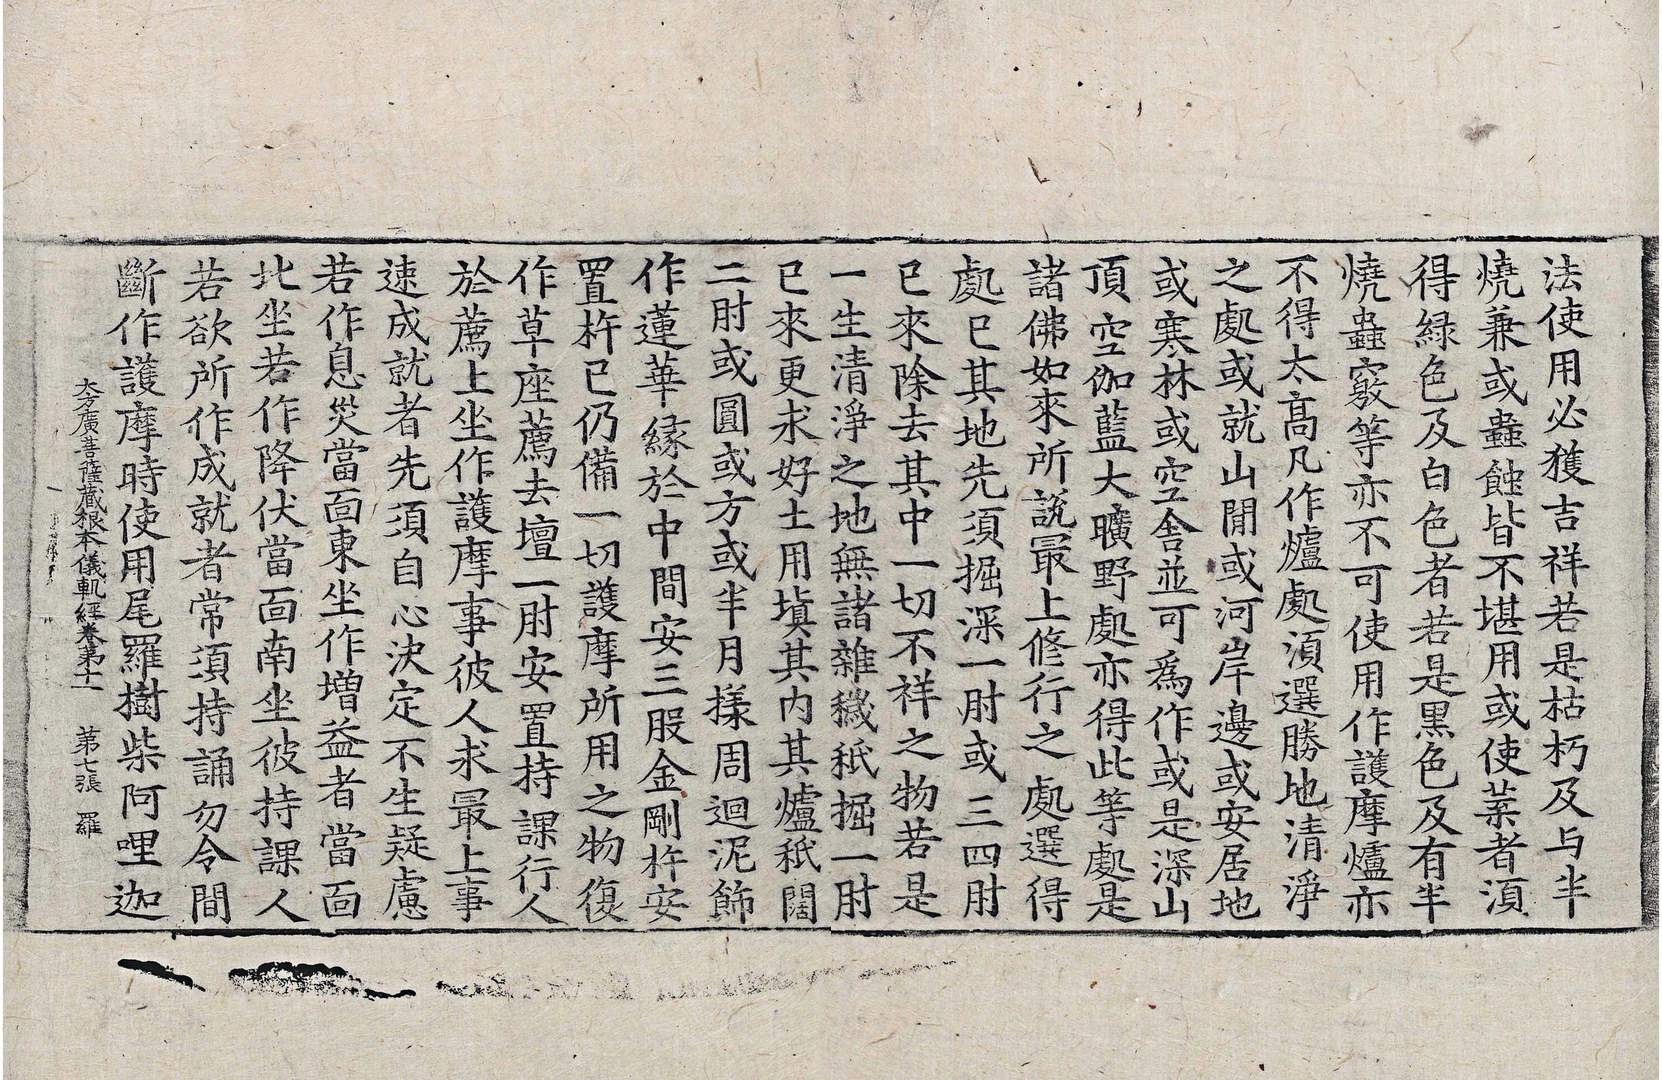 法使用必獲吉祥若是枯朽及与半
燒兼或蟲蝕皆不堪用或使葉者湏
得緑色及白色者若是黒色及有半
燒蟲竅等亦不可使用作護摩爐亦
不得太高凡作爐處湏選勝地清淨
之處或就山閒或河岸邊或安居地
或寒林或空舎並可爲作或是深山
頂空伽藍大曠野處亦得此等處是
諸佛如來所說冣上修行之處選得
處已其地先須掘深一肘或三四肘
已來除去其中一切不祥之物若是
一生清淨之地無諸雜穢秖掘一肘
已來更求好土用塡其内其爐秖闊
二肘或圓或方或半月㨾周迴泥飾
作蓮華緣於中間安三股金剛杵安
置杵已仍備一切護摩所用之物復
作草座薦去壇一肘安置持課行人
於薦上坐作護摩事彼人求冣上事
速成就者先須自心決定不生疑慮
若作息災當面東坐作増益者當面
北坐若作降伏當面南坐彼持課人
若欲所作成就者常須持誦勿令間
斷作護摩時使用尾羅樹柴阿哩迦
大方廣菩薩藏根本儀軌經卷第十一 第七張 羅